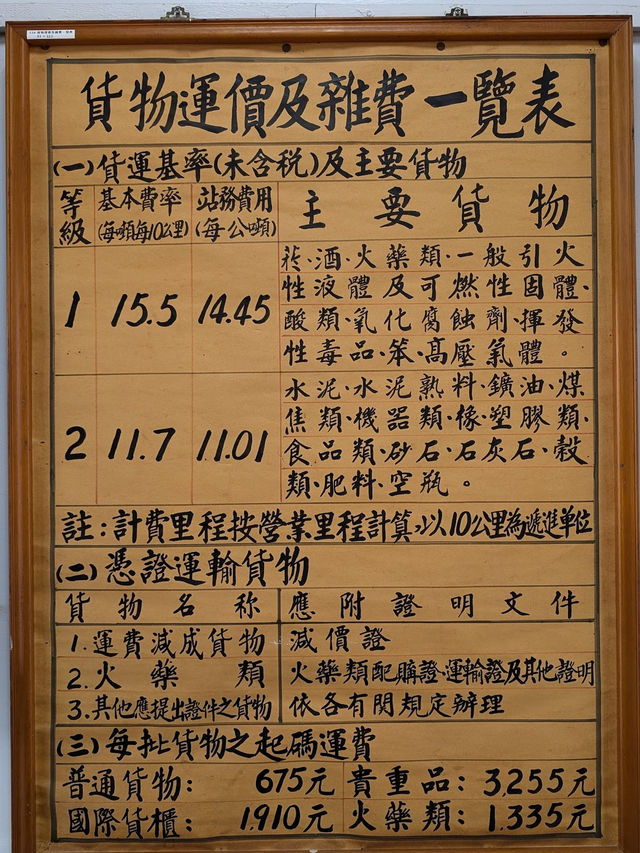 貨物運價及雜費一覽表
(一)貨運基率(未含稅)及主要貨物
等級 基本費率(每噸每10公里) 站務費用(每公噸) 主要貨物
1 15.5 14.45 菸、酒、火藥類、一般引火
性液體及可燃性固體、
酸類、氧化腐蝕劑、揮發
性毒品、笨、高壓氣體。
2 11.7 11.01 水泥、水泥熟料、鑛油、煤
焦類、機器類、橡、塑膠類、
食品類、砂石、石灰石、穀
類、肥料、空瓶。
註:計費里程按營業里程計算,以10公里為遞進單位
(二)憑證運輸貨物
貨物名稱 應附證明文件
1.運費減成貨物 減價證
2.火藥類 火藥類配購證、運輸證及其他證明
3.其他應提出證件之貨物 依各有関規定辦理
(三)每批貨物之起碼運費
普通貨物: 675元 貴重品: 3,255元
國際貨櫃: 1,910元 火藥類: 1,335元